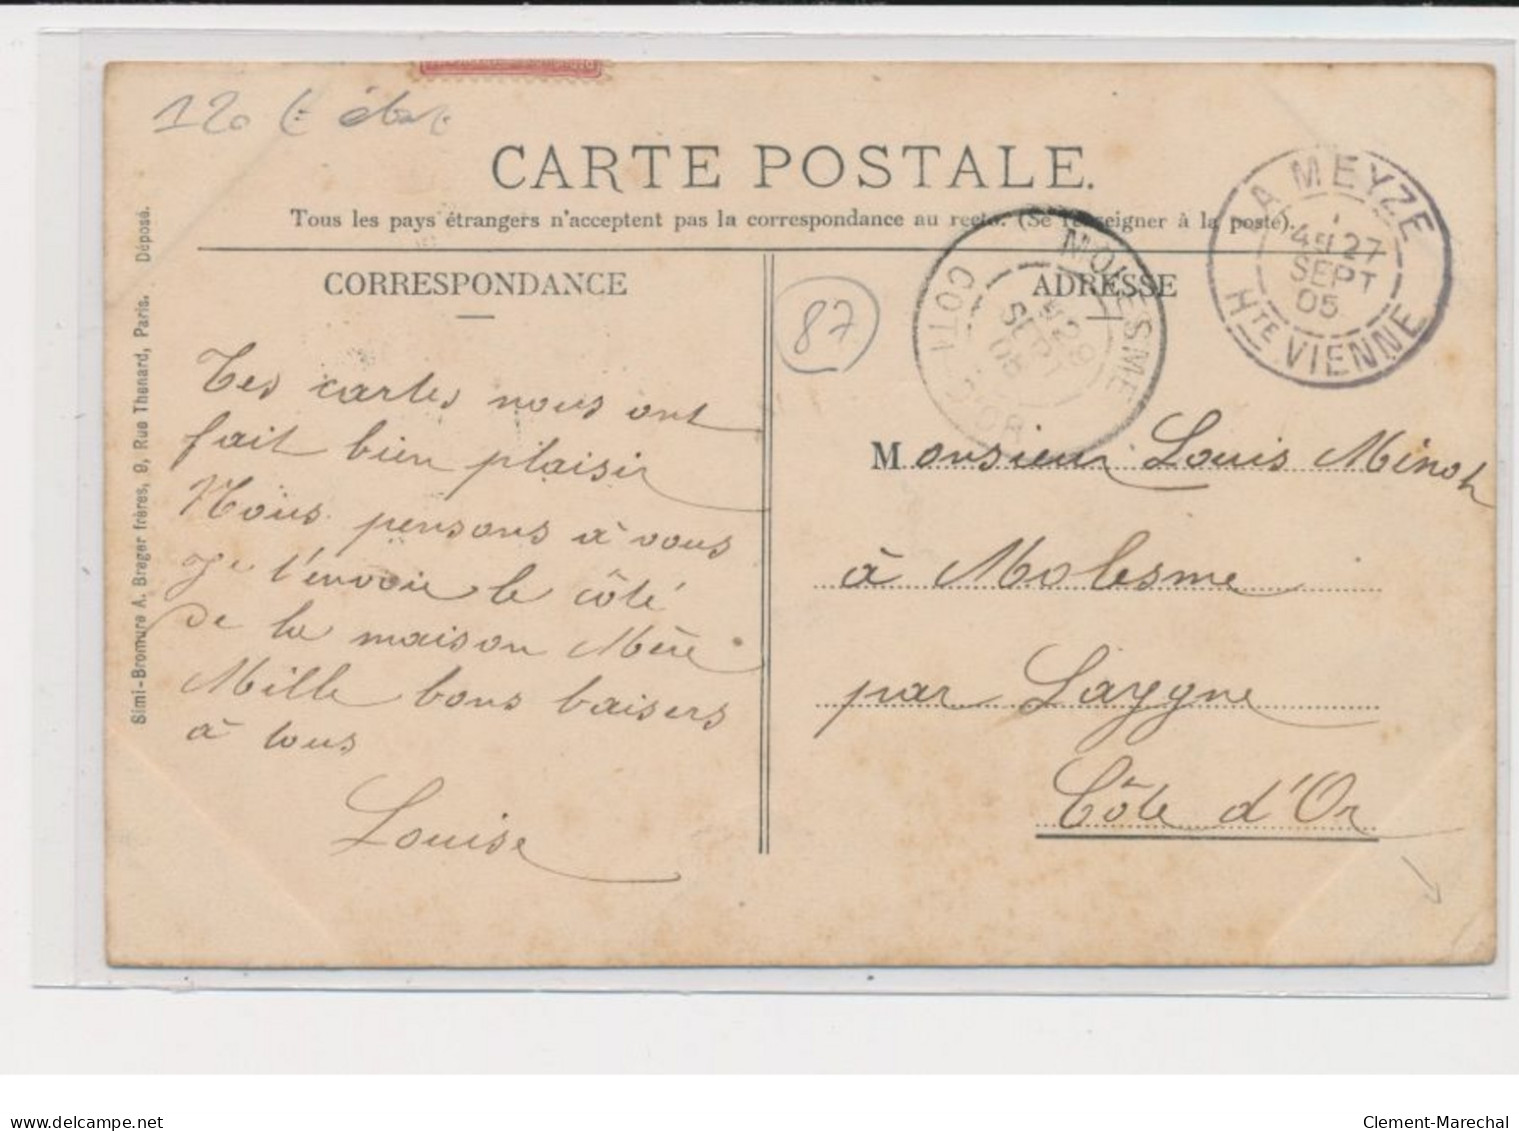 120 € état
CARTE POSTALE.
Tous les pays étrangers n'acceptent pas la correspondance au recto. (Se renseigner à la poste).
CORRESPONDANCE
Tes cartes nous ont
fait bien plaisir
Nous pensons à vous
Je t'envoie le côté
de la maison Mère
Mille bons baisers
à tous
Louise
87
ADRESSE
Monsieur Louis Minot
à Molesme
par Laygne
Côte d'Or
MOLESME
28
SEPT
05
COTE D'OR
LA MEYZE
27
SEPT
05
HTE VIENNE
Simi-Bromure A. Breger frères, 9, Rue Thenard, Paris. Déposé.
www.delcampe.net
Clement-Marechal